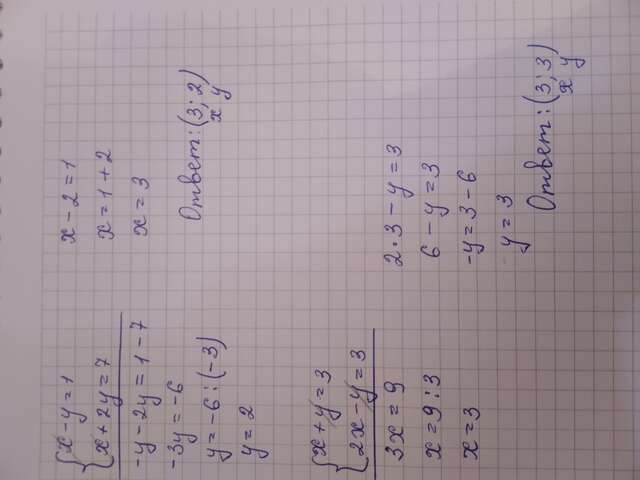 {x-y=1
x+2y=7
-y-2y=1-7
-3y=-6
y=-6:(-3)
y=2
x-2=1
x=1+2
x=3
Ответ:(3;2)
x y
{x+y=3
2x-y=3
3x=9
x=9:3
x=3
2·3-y=3
6-y=3
-y=3-6
y=3
Ответ:(3;3)
x y